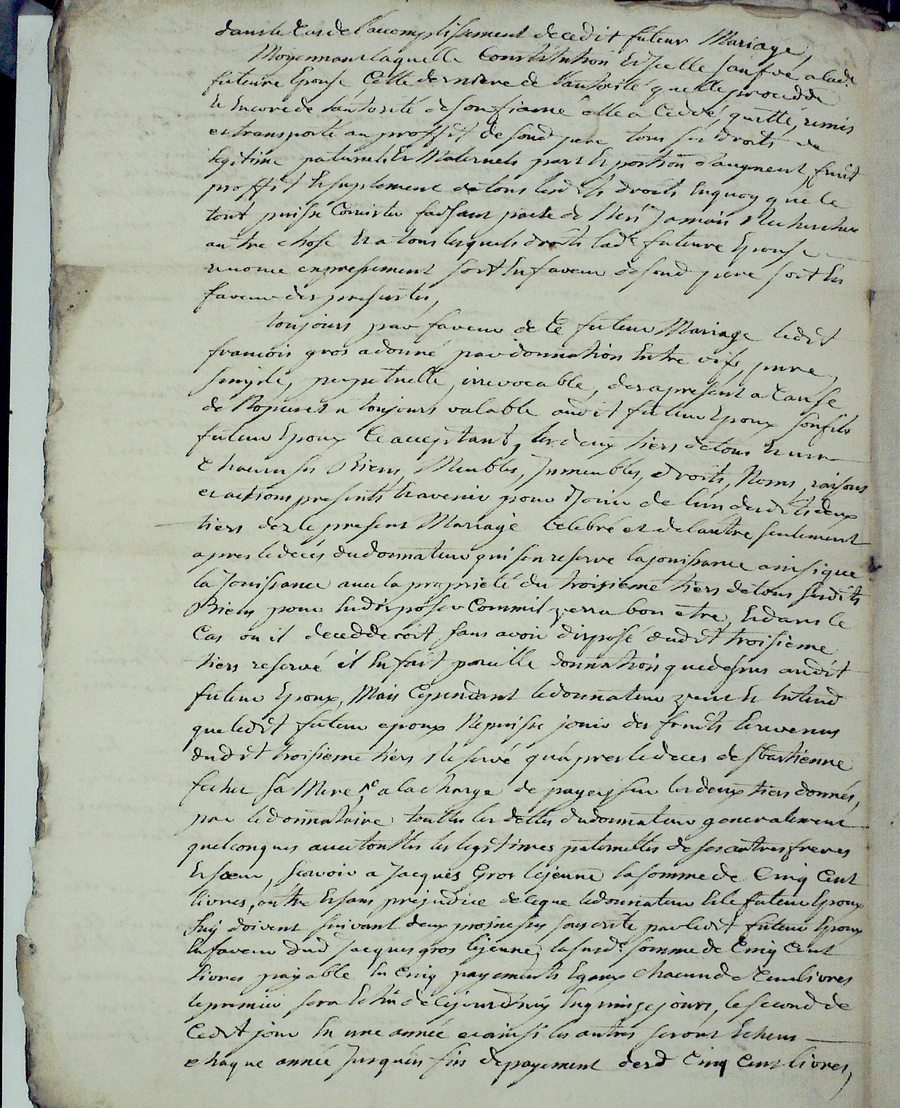 dans le Cas de l'accomplissement de cedit futeur Mariage,
Moyennant laquelle Constitution Et
futeure Epouse Cette derniere de l'autorité quelle procedde
Et Encore de l'autorité de son fiancé elle a Ceddé, quitté, remis
et transporté au proffit de sond. pere tous ses droits de
legitime paternels Et Maternels part Et portion d'augment, fruit
proffit Et suplement de tous lesd. droits Enquoy que le
tout puisse Consister faisant pacte de n'En Jamais Rechercher
autre chose Et a tous lesquels droits lade. futeure Epouse
renonce expressement soit En faveur de sond. pere soit En
faveur des presentes,
toujours par faveur de Ce futeur Mariage ledit
francois gros a donné par donnation Entre vifs, pure,
simple, perpetuelle, irrevocable, des apresent a Cause
de Nopces Et a toujours valable audit futeur Epoux son fils
futeur Epoux Ce acceptant, les deux tiers de tous Et un
Chacuns ses Biens, Meubles, Immeubles, droits, Noms, raisons
et actions presents Et avenir pour Jouir de l'un desdits deux
tiers dez le present Mariage Celebré et de l'autre seulement
apres le decés du donnateur qui s'en reserve la jouissance ainsi que
la Jouissance avec la proprieté du troisieme tiers de tous sesdits
Biens pour En disposer Comm'il verra bon etre, Et dans le
Cas ou il decedderoit sans avoir disposé dudit troisieme
tiers reservé il En fait pareille donnation que dessus audit
futeur Epoux, Mais Cependant le donnateur veut Et Entend
que ledit futeur epoux Ne puisse jouir des fruits Et revenus
dudit troisieme tiers Reservé qu'apres le deces de
sa Mere, a la charge de payer sur les deux tiers donnés,
par le donnataire toutes les dettes du donnateur generalement
quelconques avec touttes les legitimes paternelles de ses autres freres
Et soeur, Scavoir a Jacques Gros lejeune la somme de Cinq Cent
livres, outre Et sans prejudice de Ce que le donnateur Et le futeur Epoux
luy doivent suivant deux promesses souscrite par ledit futeur Epoux
En faveur dud. Jacques gros lejeune, la susde. somme de Cinq Cent
livres payable En Cinq payements Egaux chacun de Cent livres
le premier sera Echu de Cejourdhuy En quinze jours, le second de
Cedit jour En une année et ainsi les autres seront Echeus
chaque année Jusques fin de payement desd. Cinq Cent livres,